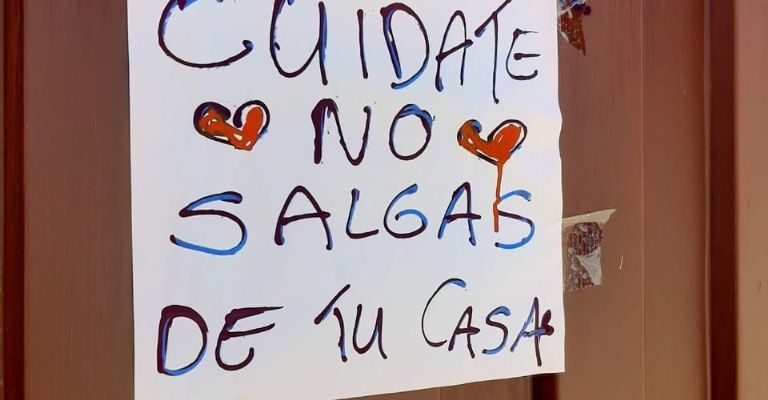 CUIDATE
NO
SALGAS
DE TU CASA